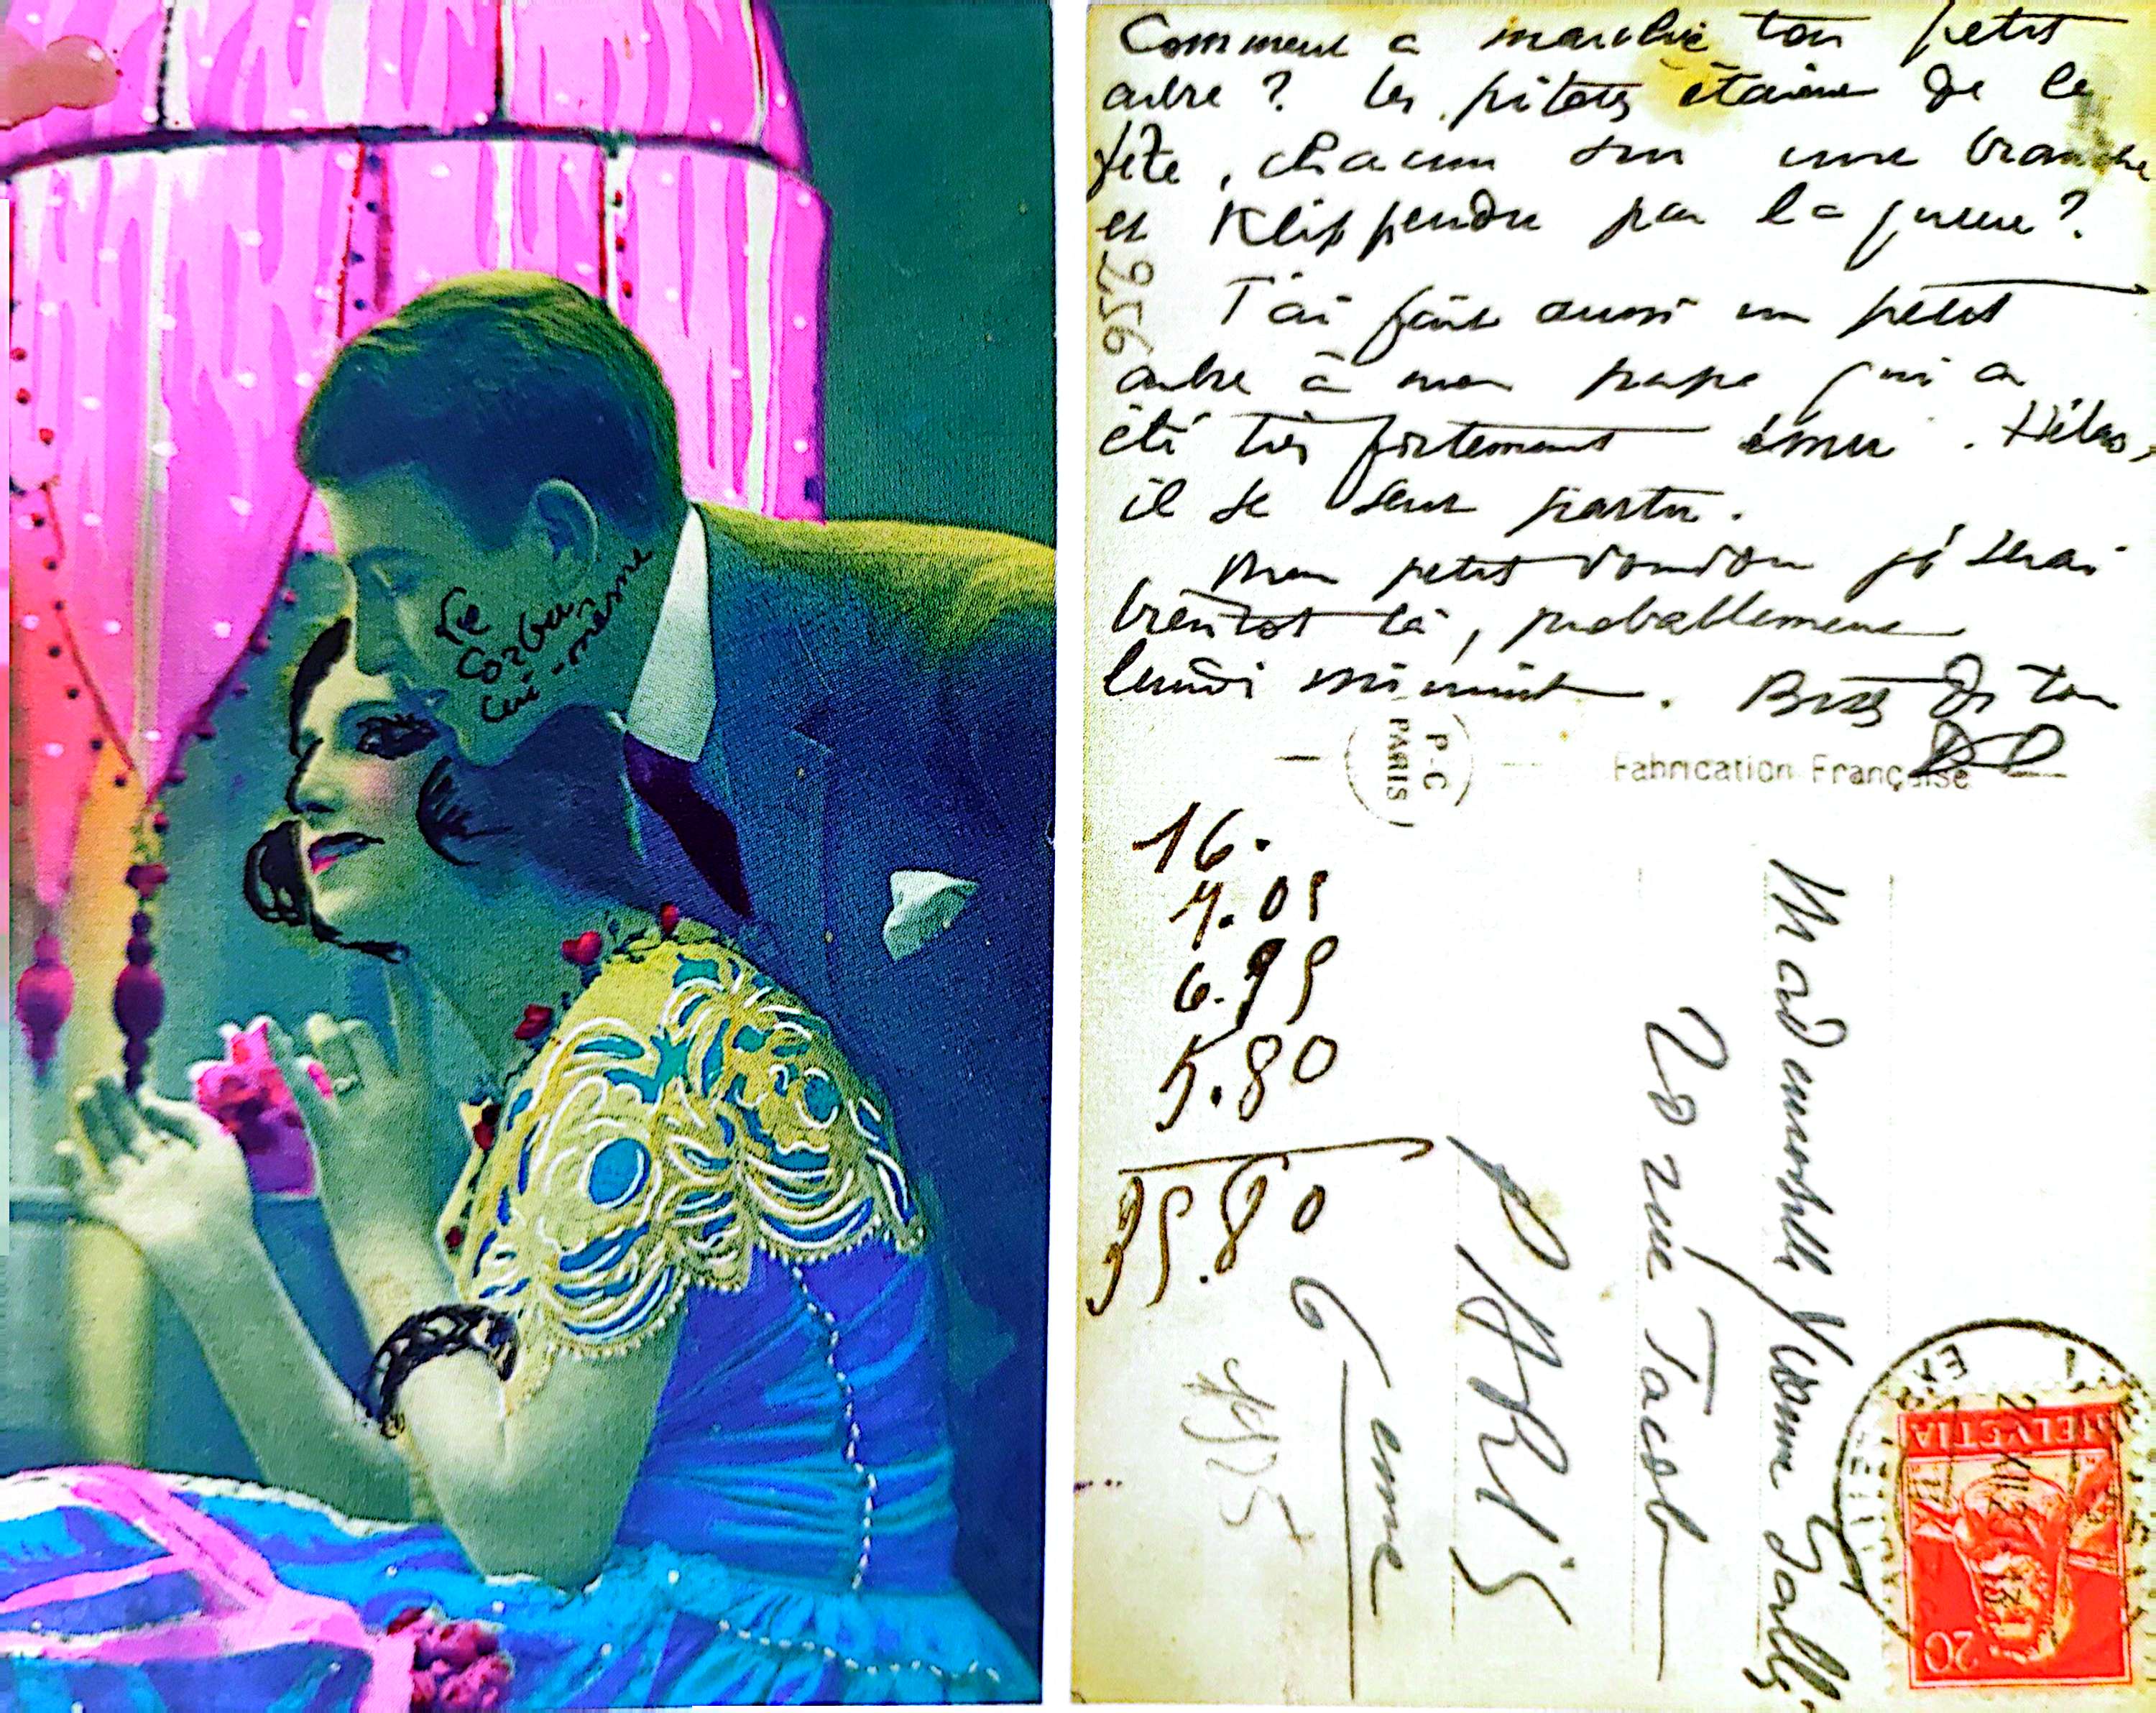 Le
Corbu
lui-même
Comment a marché ton petit
arbre ? Les pilotis étaient de la
fête, chacun sur une branche
et Klip pendu par la queue ?
J'ai fait aussi un petit
arbre à mon papa qui a
été très fortement ému. Hélas,
il se sent partir.
Mon petit doudou je serai
bientôt là, probablement
lundi minuit. Bises de ton
DD
956
P-C
PARIS
Fabrication Française
16.
7.05
6.95
5.80
35.80
Mademoiselle Yvonne Gallis
20 rue Jacob
PARIS
6 eme
HELVETIA
20